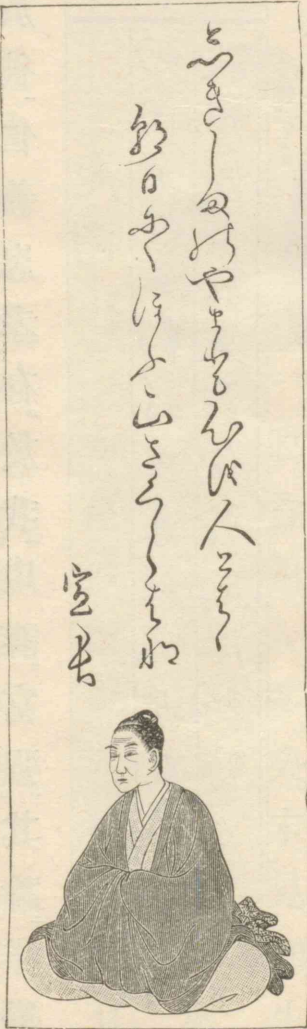 志きしまのやまとこゝろを人とはゝ
朝日にゝほふ山さくらはな
宣長